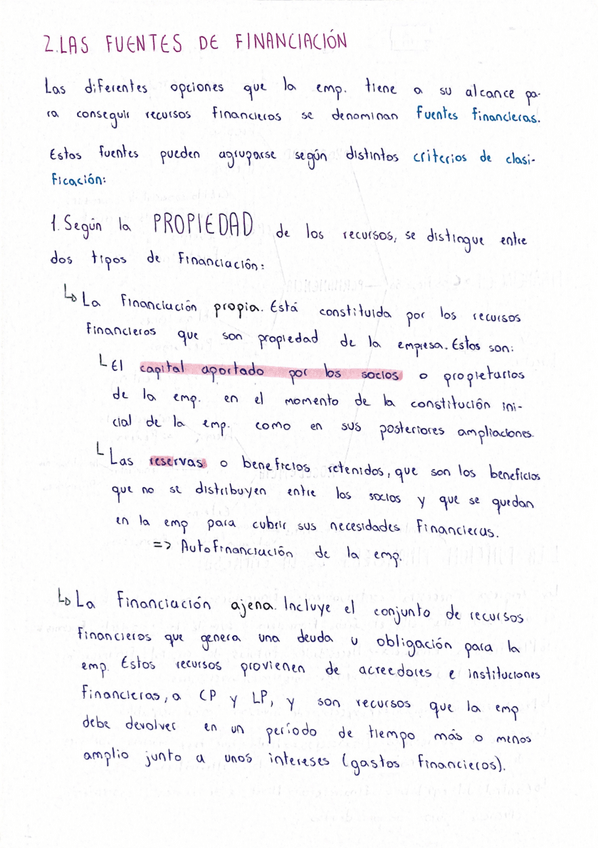 2. LAS FUENTES DE FINANCIACIÓN
Las diferentes opciones que la emp. tiene a su alcance pa-
ra conseguir recursos financieros se denominan fuentes financieras.
Estas fuentes pueden agruparse según distintos criterios de clasi-
ficación:
1. Según la PROPIEDAD de los recursos, se distingue entre
dos tipos de financiación:
↳ La financiación propia. Está constituida por los recursos
financieros que son propiedad de la empresa. Estos son:
└ El capital aportado por los socios o propietarios
de la emp. en el momento de la constitución ini-
cial de la emp. como en sus posteriores ampliaciones.
└ Las reservas o beneficios retenidos, que son los beneficios
que no se distribuyen entre los socios y que se quedan
en la emp para cubrir sus necesidades financieras.
=> Autofinanciación de la emp.
↳ La financiación ajena. Incluye el conjunto de recursos
financieros que genera una deuda u obligación para la
emp. Estos recursos provienen de acreedores e instituciones
financieras, a CP y LP, y son recursos que la emp
debe devolver en un período de tiempo más o menos
amplio junto a unos intereses (gastos financieros).